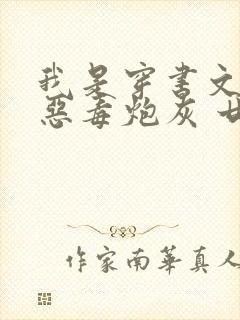 我是穿书文
惡毒炮灰 甘
作家南華真人